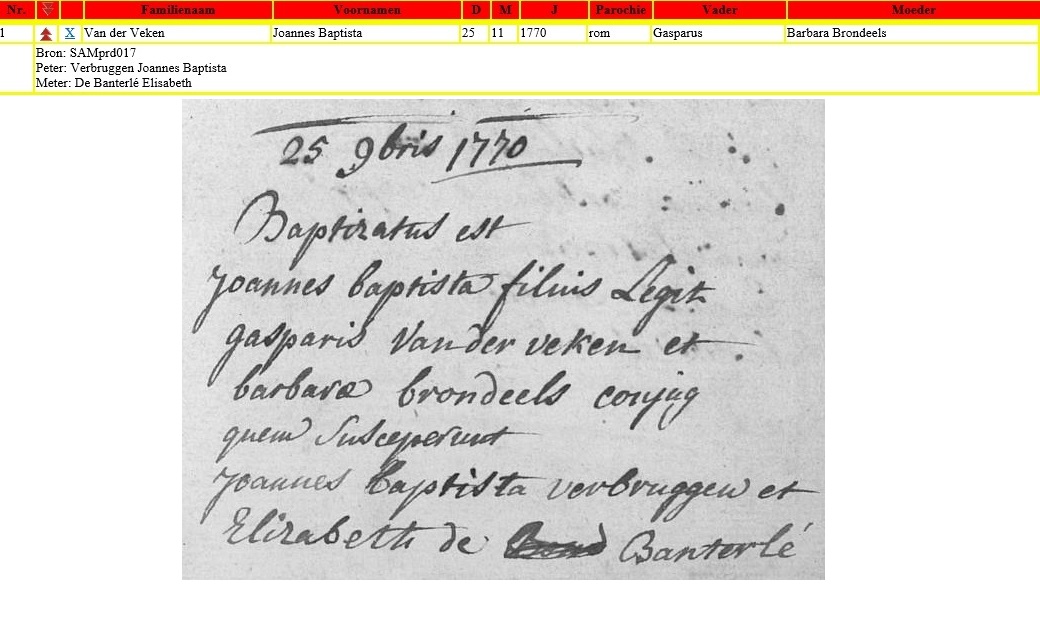 Nr. Familienaam Voornamen D M J Parochie Vader Moeder
1 X Van der Veken Joannes Baptista 25 11 1770 rom Gasparus Barbara Brondeels
Bron: SAMprd017
Peter: Verbruggen Joannes Baptista
Meter: De Banterlé Elisabeth
25 9bris 1770
Baptizatus est
Joannes baptista filius Legit
gasparis Van der veken et
barbaræ brondeels conjug
quem Susceperunt
Joannes baptista verbruggen et
Elizabeth de Banterlé